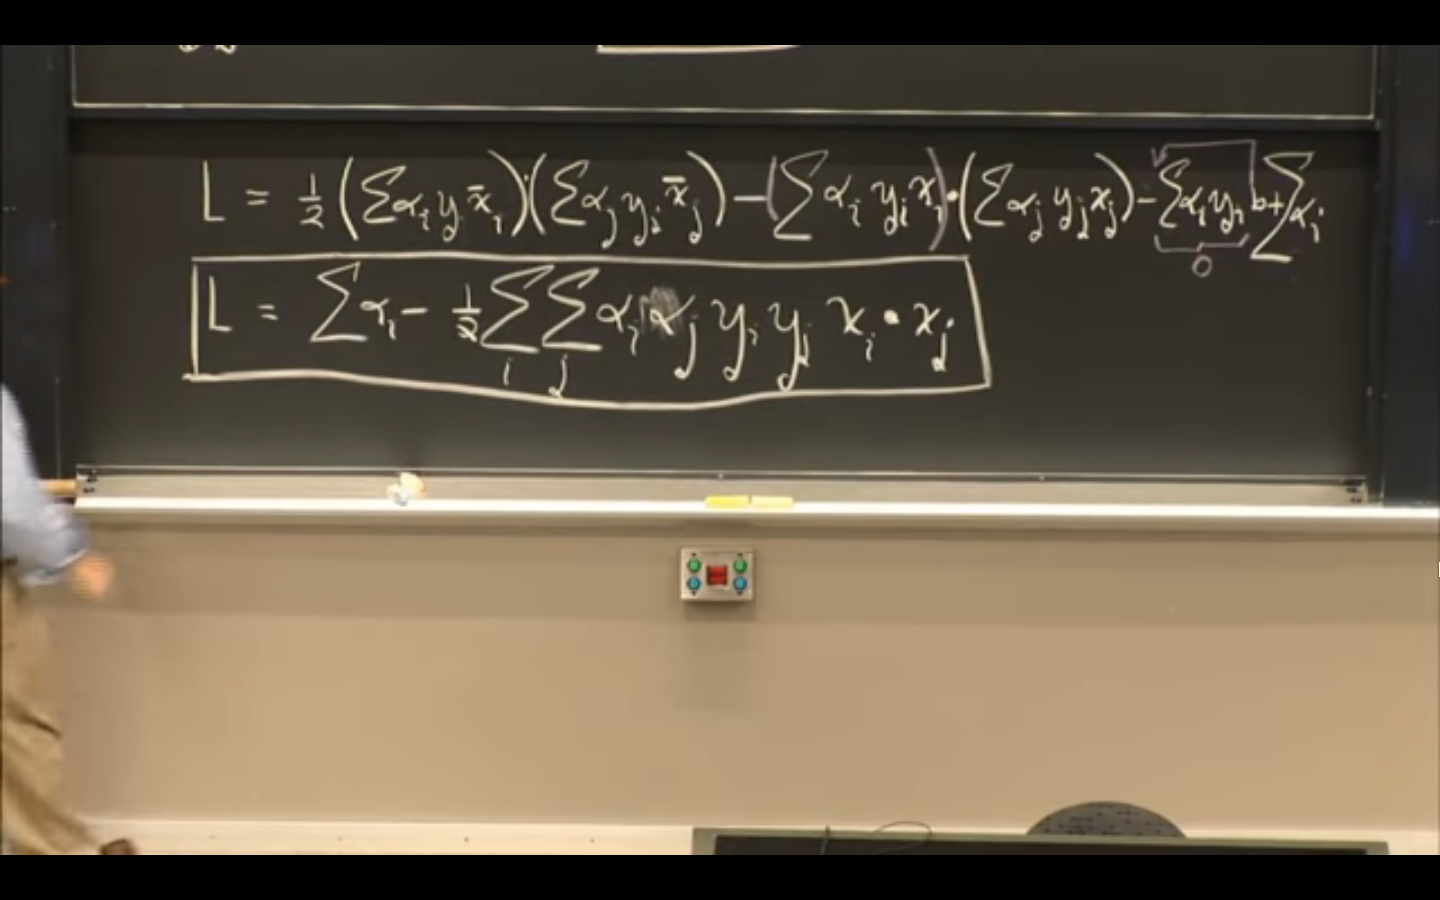 L = 1/2 (Σαᵢ yᵢ x̄ᵢ)·(Σαⱼ yⱼ x̄ⱼ) − (Σ αᵢ yᵢ xᵢ)·(Σ αⱼ yⱼ xⱼ) − Σαᵢyᵢ b + Σαᵢ
0
L = Σαᵢ − 1/2 Σᵢ Σⱼ αᵢ αⱼ yᵢ yⱼ xᵢ · xⱼ